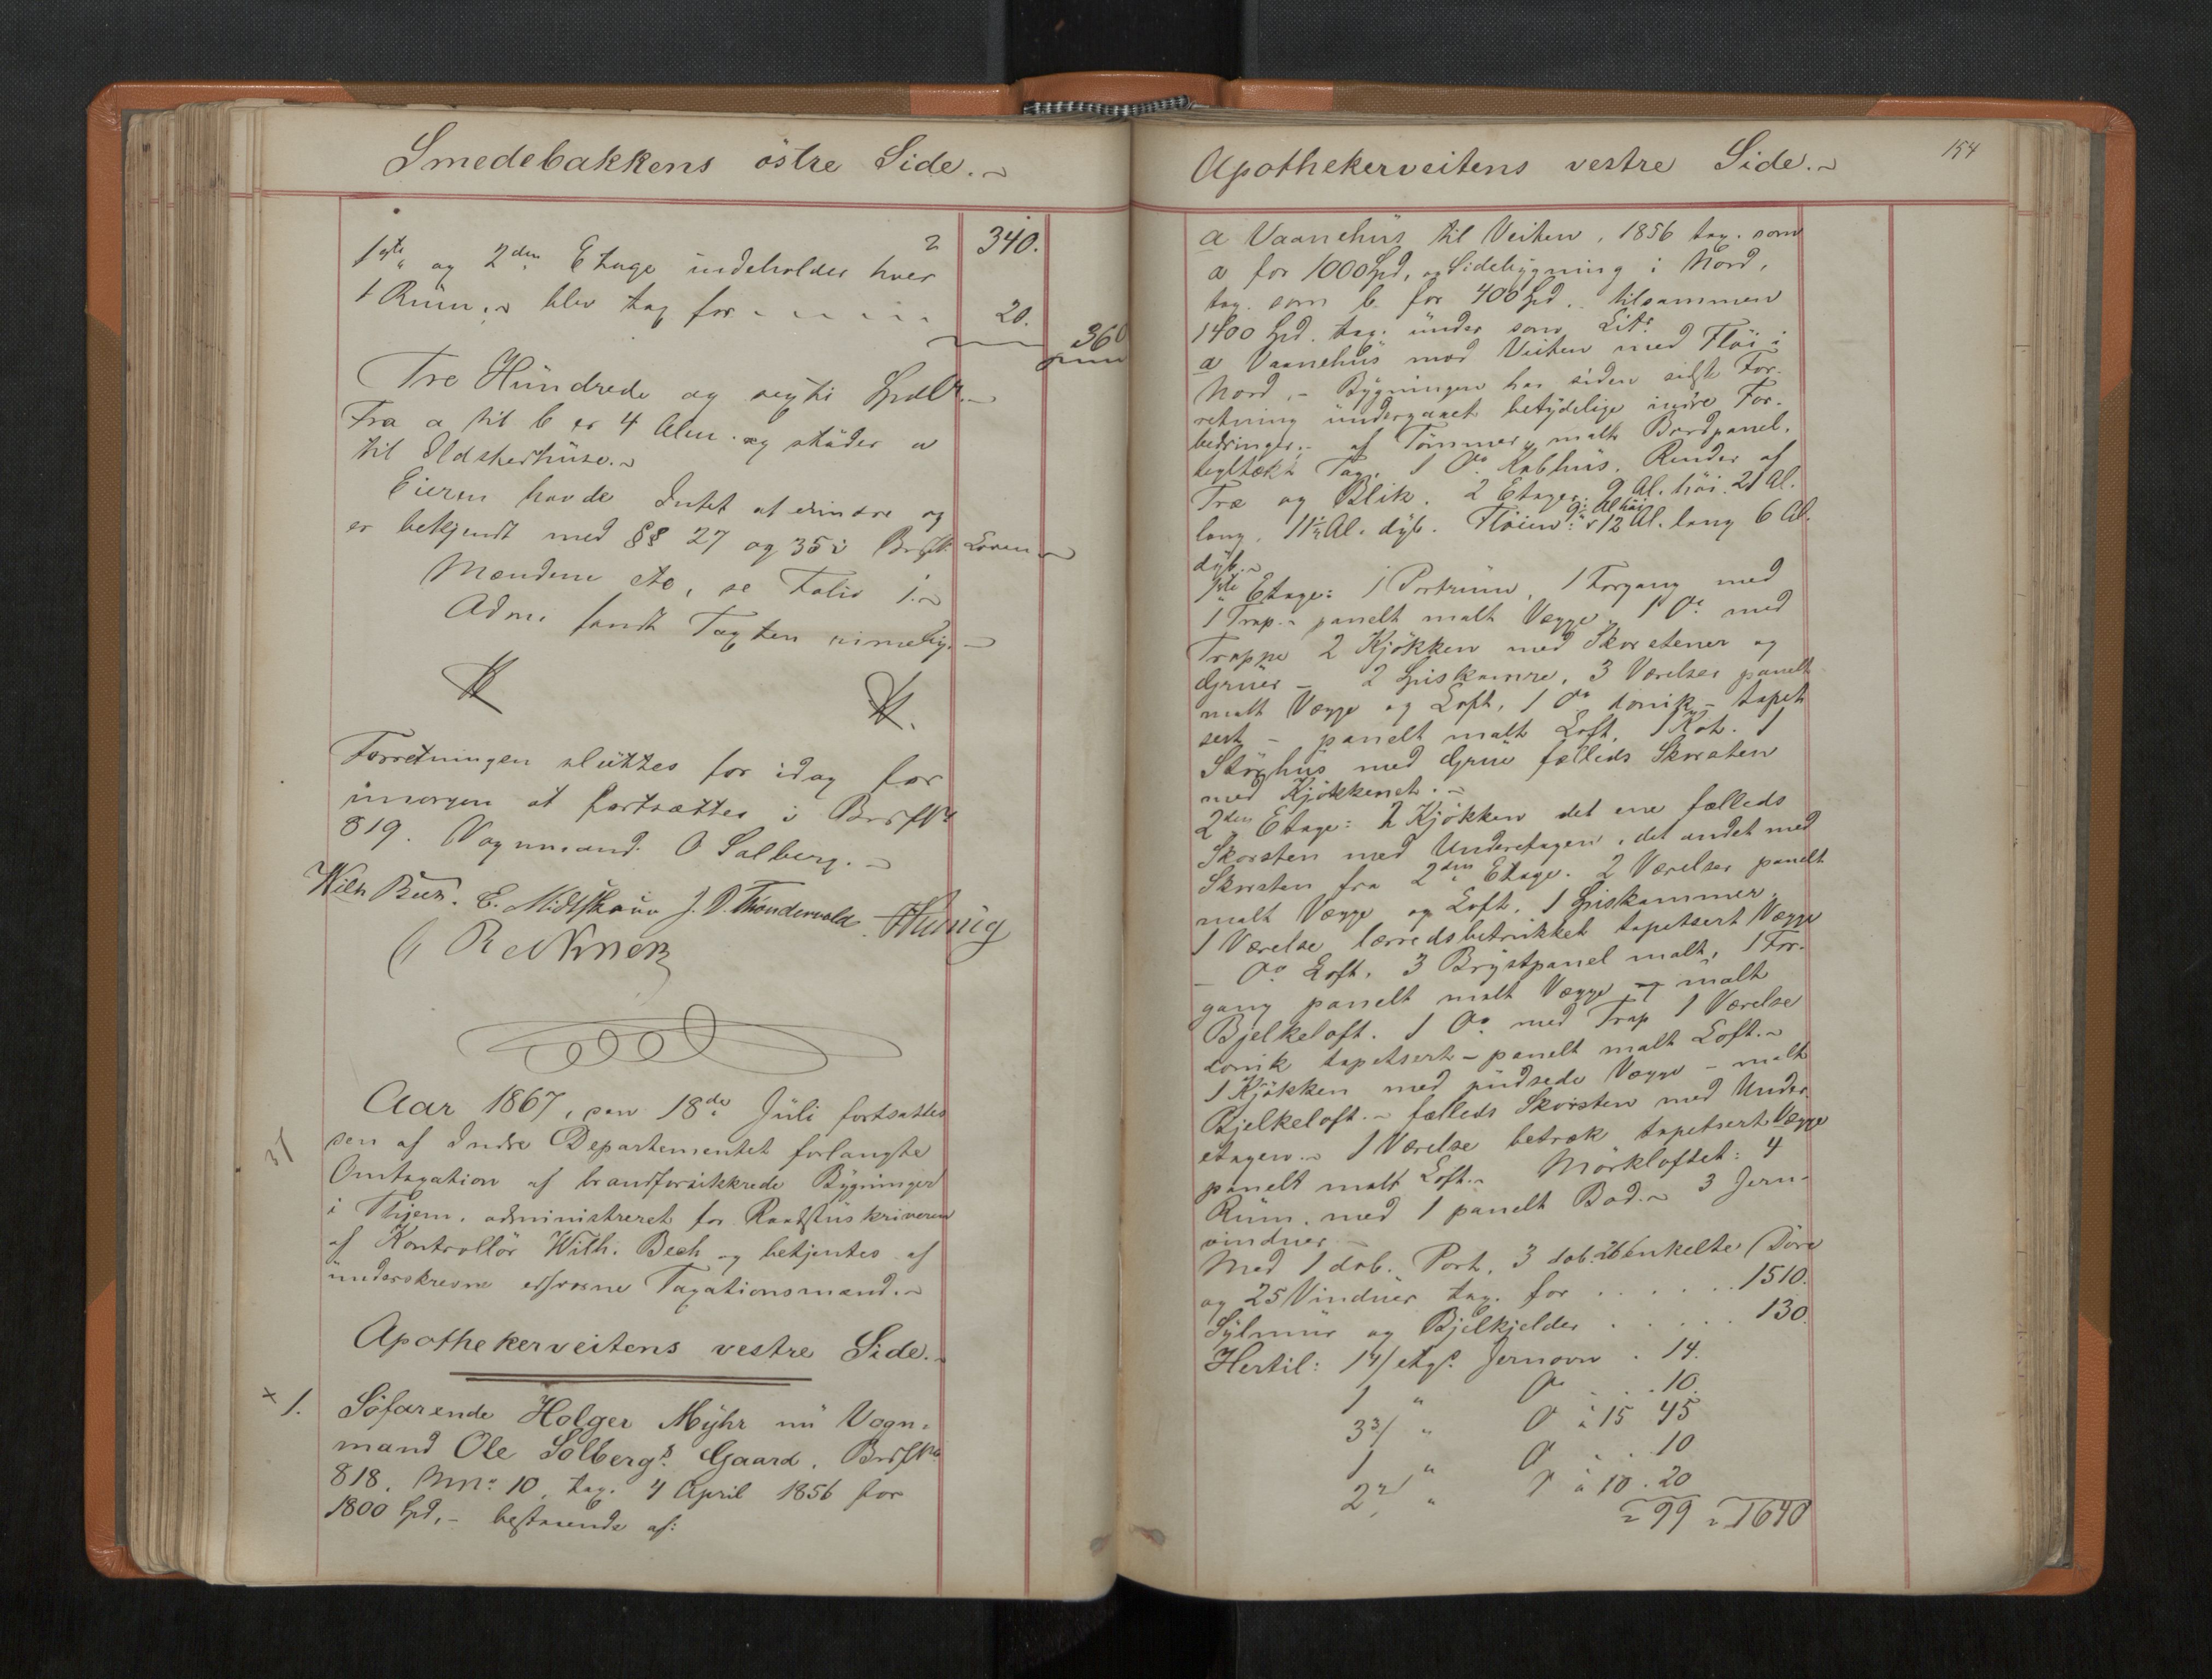 Smedebakkens östre Side.
2 340.
1ste og 2den Etage indeholder hver
1 Rum, blev tax for 20.
360
Tre Hundrede og sexti Spdlr.
Fra a til b er 4 Alen og stöder a
til Ildsherhuse.
Eieren havde Intet at erindre og
er bekjendt med §§ 27 og 35 i Brdf. Loven
Mændene etc, se Folio 1.
Adm. fandt Taxten rimelig.
Forretningen sluttes for idag for
imorgen at fortsættes i BrdfNo
819. Vognmand O Solberg.
Wilh Bech. E. Midtskouv J. D. Thröndervold
Aar 1867, den 18de Juli fortsattes
den af Indre Departementet forlangte
Omtaxation af brandforsikkrede Bygninger
i Thjem, administreret for Raadstuskriveren
af Kontrollör Wilh. Bech og betjentes af
underskrevne edsvorne Taxationsmænd.
37
Apothekerveitens vestre Side.
× 1. Söfarende Holger Myhr nu Vogn-
mand Ole Solbergs Gaard, BrdfNo
818. MNo 10, tax. 4 April 1856 for
1800 Spd, bestaaende af:
Apothekerveitens vestre Side.
154
a Vaanehus til Veiten, 1856 tax. som
a for 1000 Spd, og Sidebygning i Nord,
tax. som b for 400 Spd. tilsammen
1400 Spd. tax. under som Litr
a Vaanehus mod Veiten med Flöi i
Nord, – Bygningen har siden sidste For-
retning undergaaet betydelige indre For-
bedringer, af Tömmer, malt Bordpanel,
tegltækt Tag, 1 Do Kobhus. Render af
Træ og Blik. 2 Etager. 9 Al. höi. 21 Al.
lang, 11½ Al. dyb. Flöien: 9 Al höi 12 Al. lang 6 Al.
dyb.
1ste Etage: 1 Portrum, 1 Forgang med
1 Trap. panelt malt Vægge, 1 Do med
Trappe 2 Kjökken med Skorstener og
Gruer – 2 Spiskamre, 3 Værelser panelt
malt Vægge og Loft, 1 Do donik – tapet
sert – panelt malt Loft, 1 Kot. 1
Störhus med Grue fælleds Skorsten
med Kjökkenet.
2den Etage: 2 Kjökken det ene fælleds
Skorsten med Underetagen, det andet med
Skorsten fra 2den Etage. 2 Værelser panelt
malt Vægge og Loft, 1 Spiskammer.
1 Værelse lærredsbetrukket tapetsert Vægge
– Do Loft, 3 Brystpanel malt, 1 For-
gang panelt malt Vægge og malt
Bjelkeloft. 1 Do med Trap 1 Værelse
donik tapetsert – panelt malt Loft.
1 Kjökken med pudsede Vægge – malt
Bjelkeloft. fælleds Skorsten med Under-
etagen. 1 Værelse betræk tapetsert Vægge
panelt malt Loft. Mörkloftet: 4
Rum, med 1 panelt Bod. 3 Jern-
vinduer.
Med 1 dob. Port, 3 dob. 26 enkelte Döre
og 25 Vinduer tax. for . . . . . . 1510.
Sylmur og Bjelkjelder . . . . . 130.
Hertil: 1 4/ etgs. Jernovn . 14.
1 " Do . . 10.
3 3/ " Do à 15 45
1 " Do . . 10
2 2/ " Do à 10 . 20
99 1640